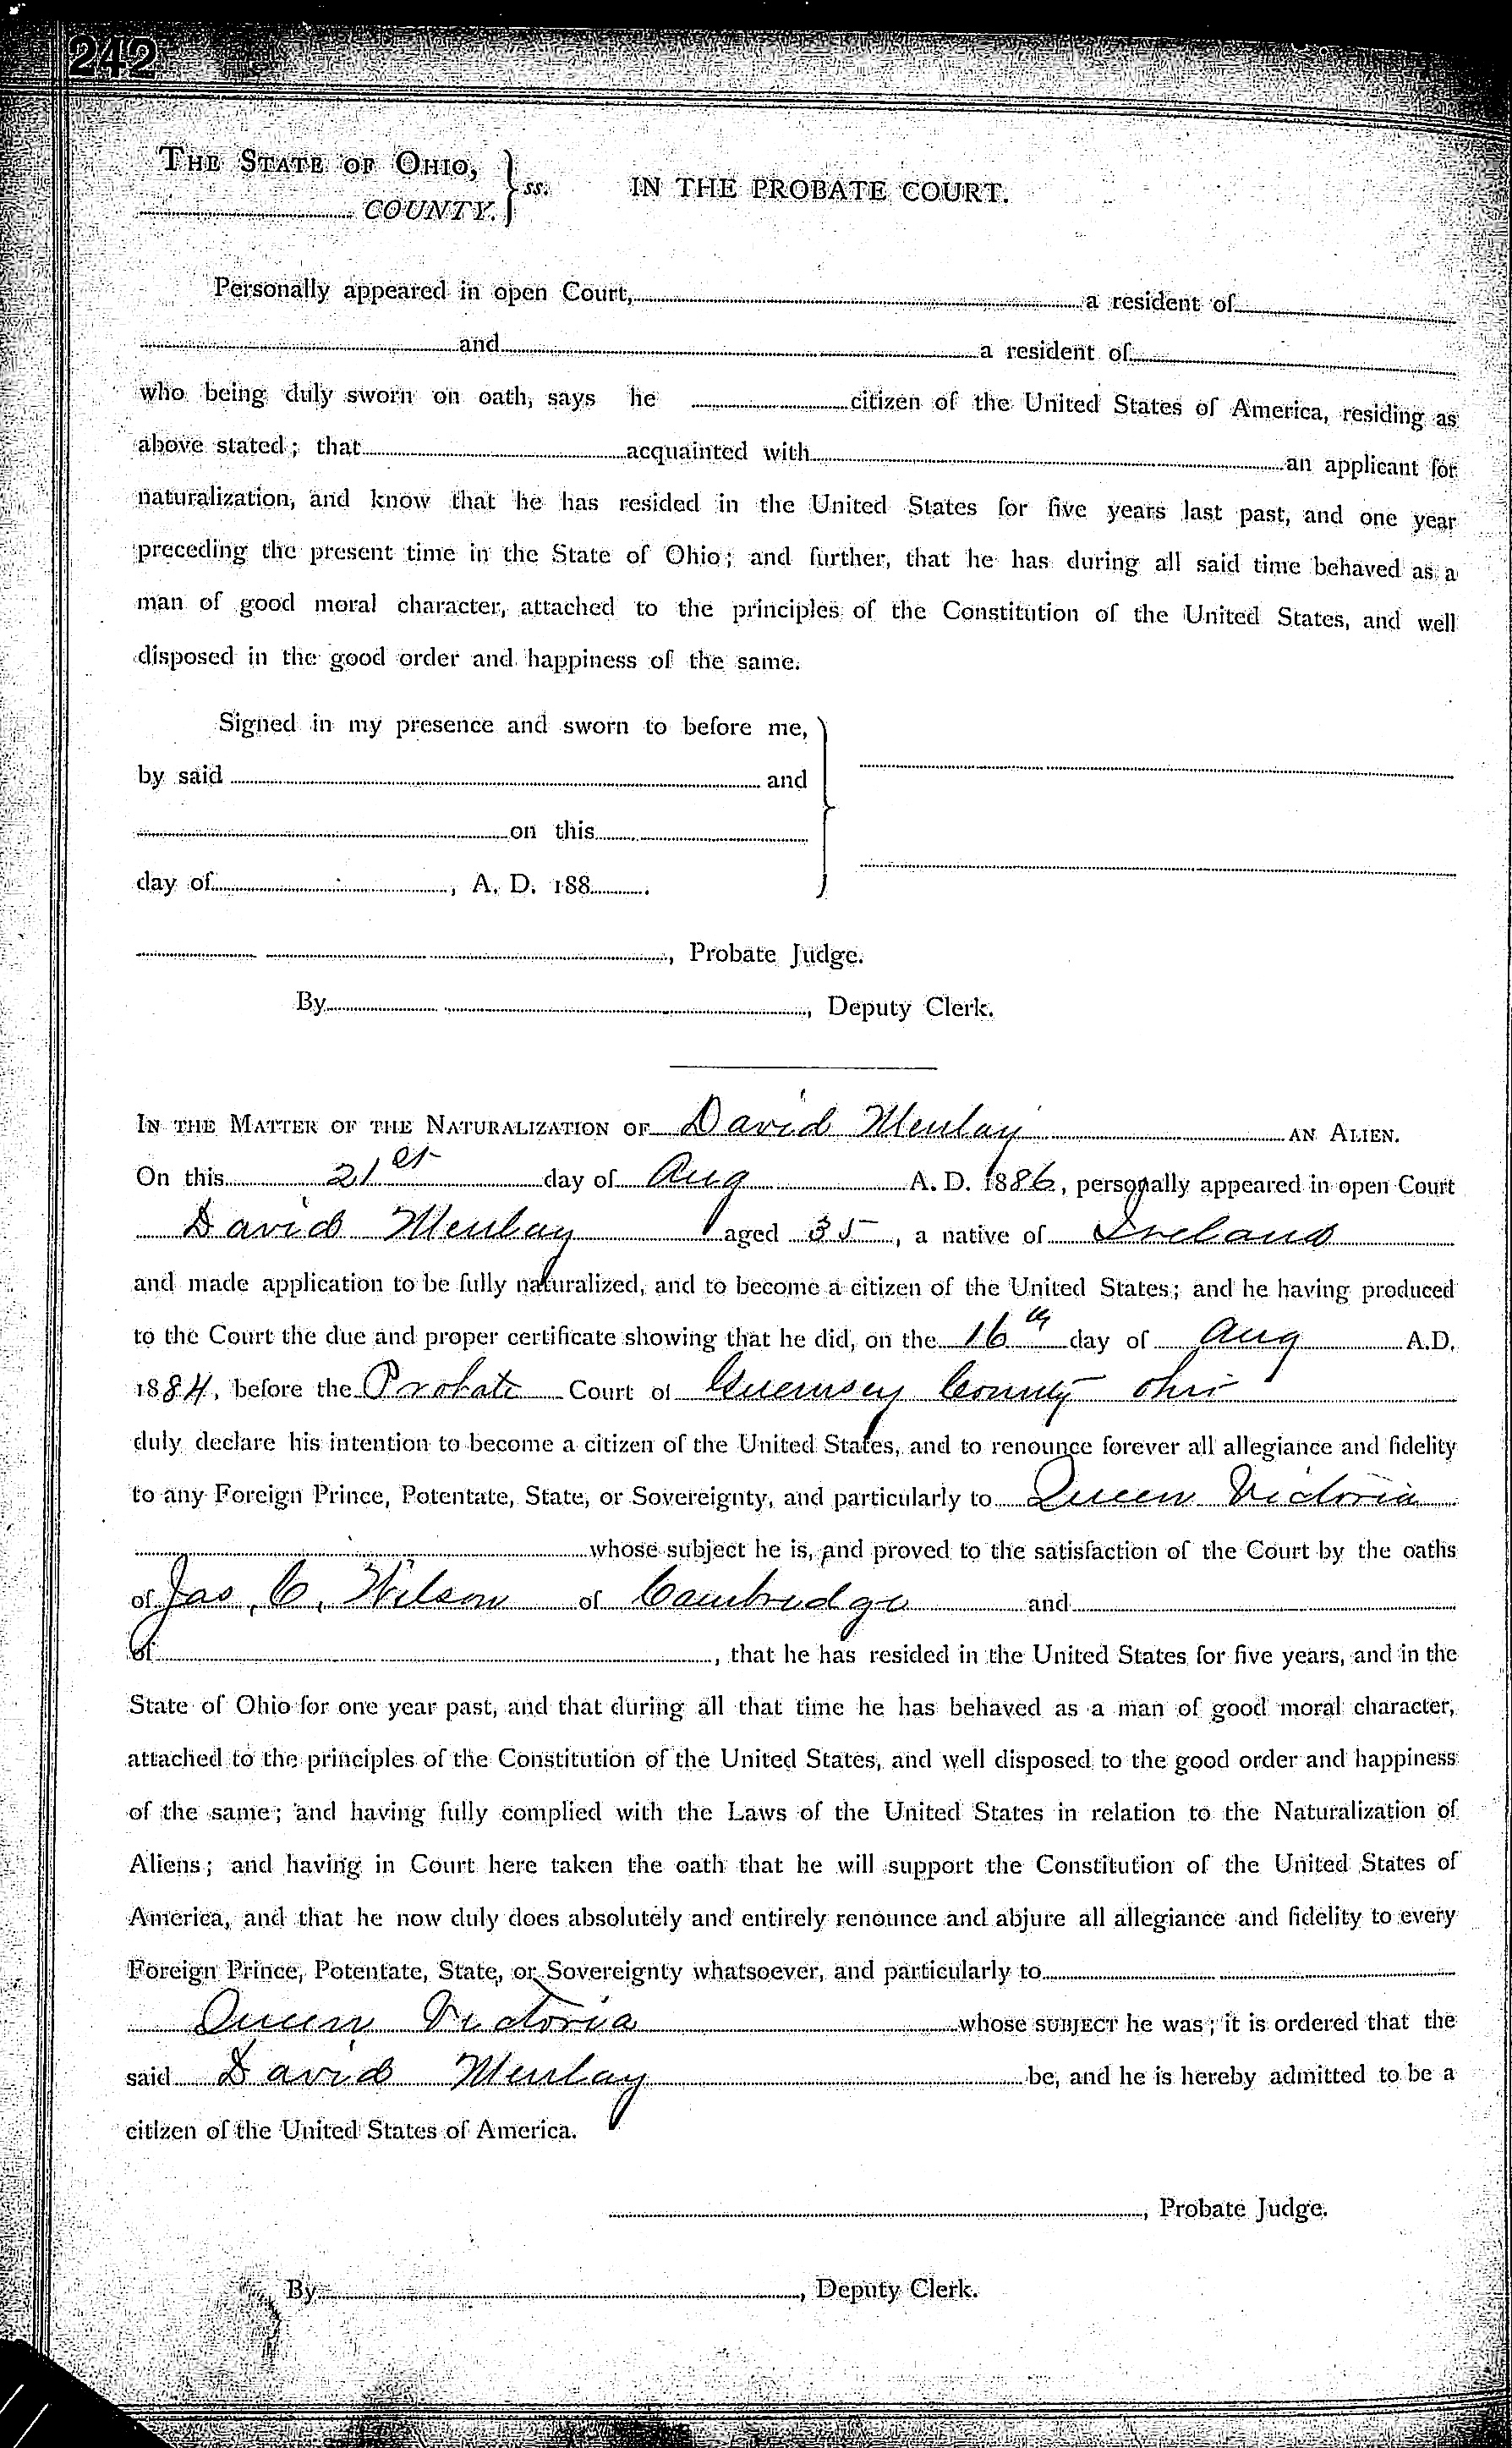 242
THE STATE OF OHIO,
COUNTY. } ss. IN THE PROBATE COURT.
Personally appeared in open Court, a resident of
and a resident of
who being duly sworn on oath, says he citizen of the United States of America, residing as
above stated; that acquainted with an applicant for
naturalization, and know that he has resided in the United States for five years last past, and one year
preceding the present time in the State of Ohio; and further, that he has during all said time behaved as a
man of good moral character, attached to the principles of the Constitution of the United States, and well
disposed in the good order and happiness of the same.
Signed in my presence and sworn to before me,
by said and
on this
day of , A. D. 188 .
, Probate Judge.
By , Deputy Clerk.
IN THE MATTER OF THE NATURALIZATION OF David AN ALIEN.
On this 21st day of Aug A. D. 1886, personally appeared in open Court
David aged 35, a native of Ireland
and made application to be fully naturalized, and to become a citizen of the United States; and he having produced
to the Court the due and proper certificate showing that he did, on the 16th day of Aug A.D.
1884, before the Probate Court of Guernsey County Ohio
duly declare his intention to become a citizen of the United States, and to renounce forever all allegiance and fidelity
to any Foreign Prince, Potentate, State, or Sovereignty, and particularly to Queen Victoria
whose subject he is, and proved to the satisfaction of the Court by the oaths
of Jas. C. Wilson of Cambridge and
of , that he has resided in the United States for five years, and in the
State of Ohio for one year past, and that during all that time he has behaved as a man of good moral character,
attached to the principles of the Constitution of the United States, and well disposed to the good order and happiness
of the same; and having fully complied with the Laws of the United States in relation to the Naturalization of
Aliens; and having in Court here taken the oath that he will support the Constitution of the United States of
America, and that he now duly does absolutely and entirely renounce and abjure all allegiance and fidelity to every
Foreign Prince, Potentate, State, or Sovereignty whatsoever, and particularly to
Queen Victoria whose SUBJECT he was; it is ordered that the
said David be, and he is hereby admitted to be a
citizen of the United States of America.
, Probate Judge.
By , Deputy Clerk.